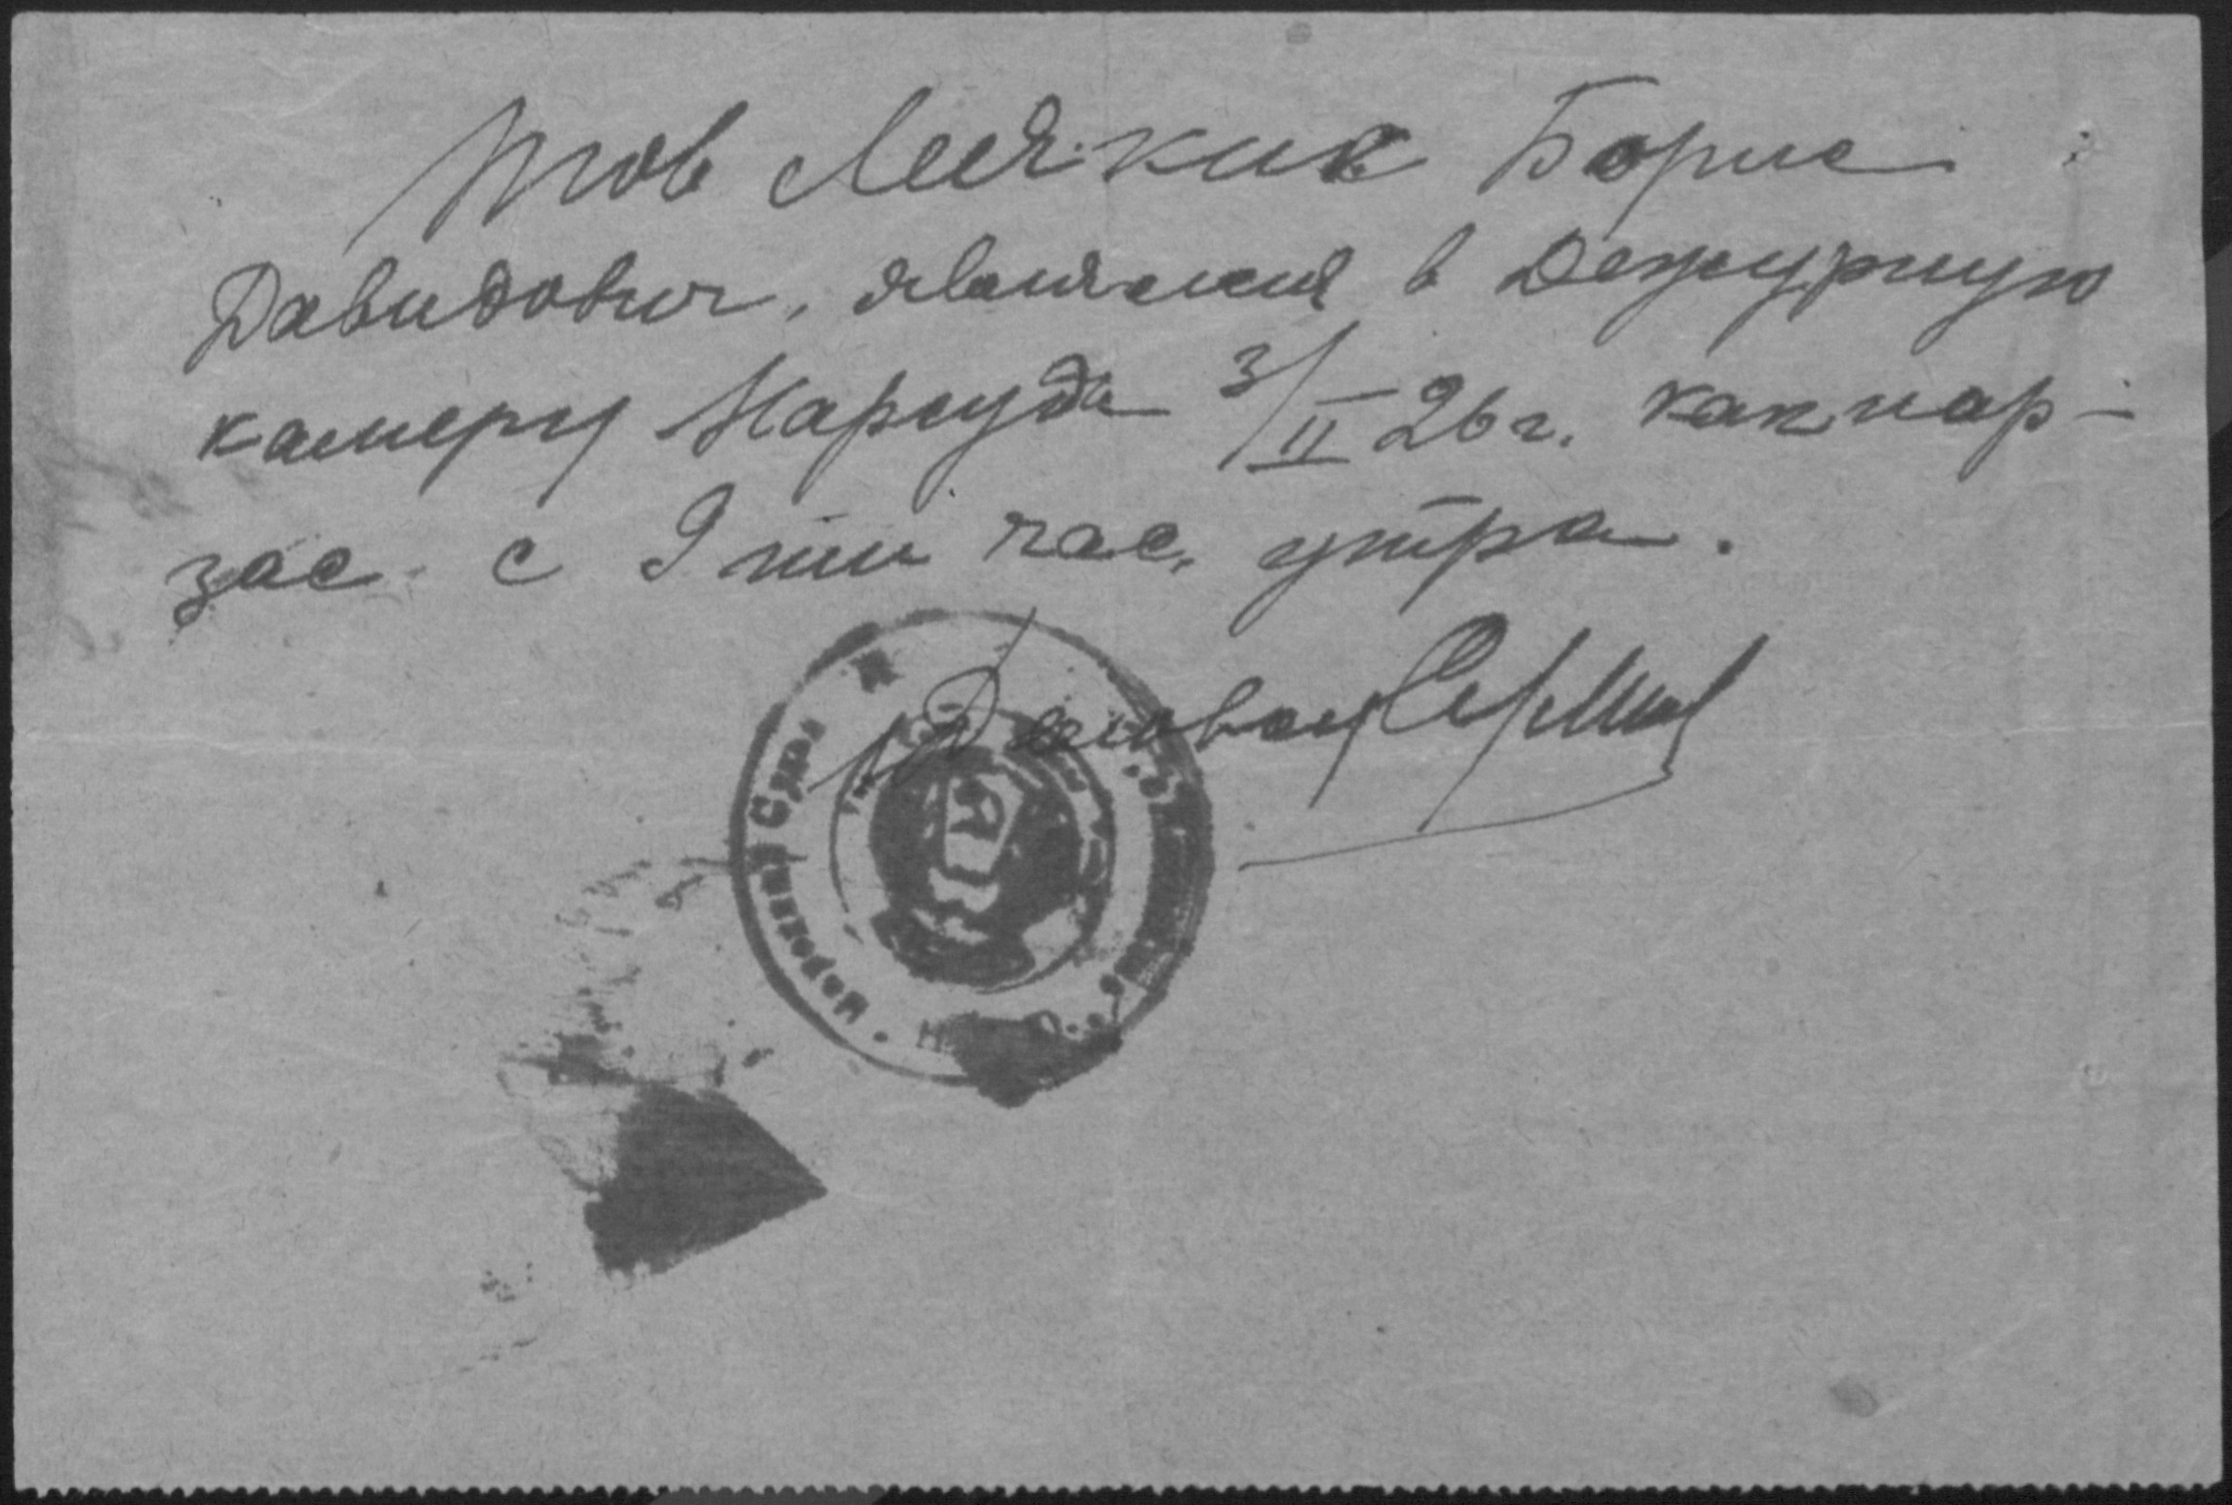 Тов Борис
Давидович, являлся в Дежурную
камеру Нарсуда 3/II 26 г. как нар-
зас с 9 ти час. утра.
Народный Суд